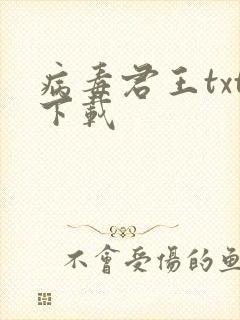 病毒君王txt
下載
不會受傷的魚